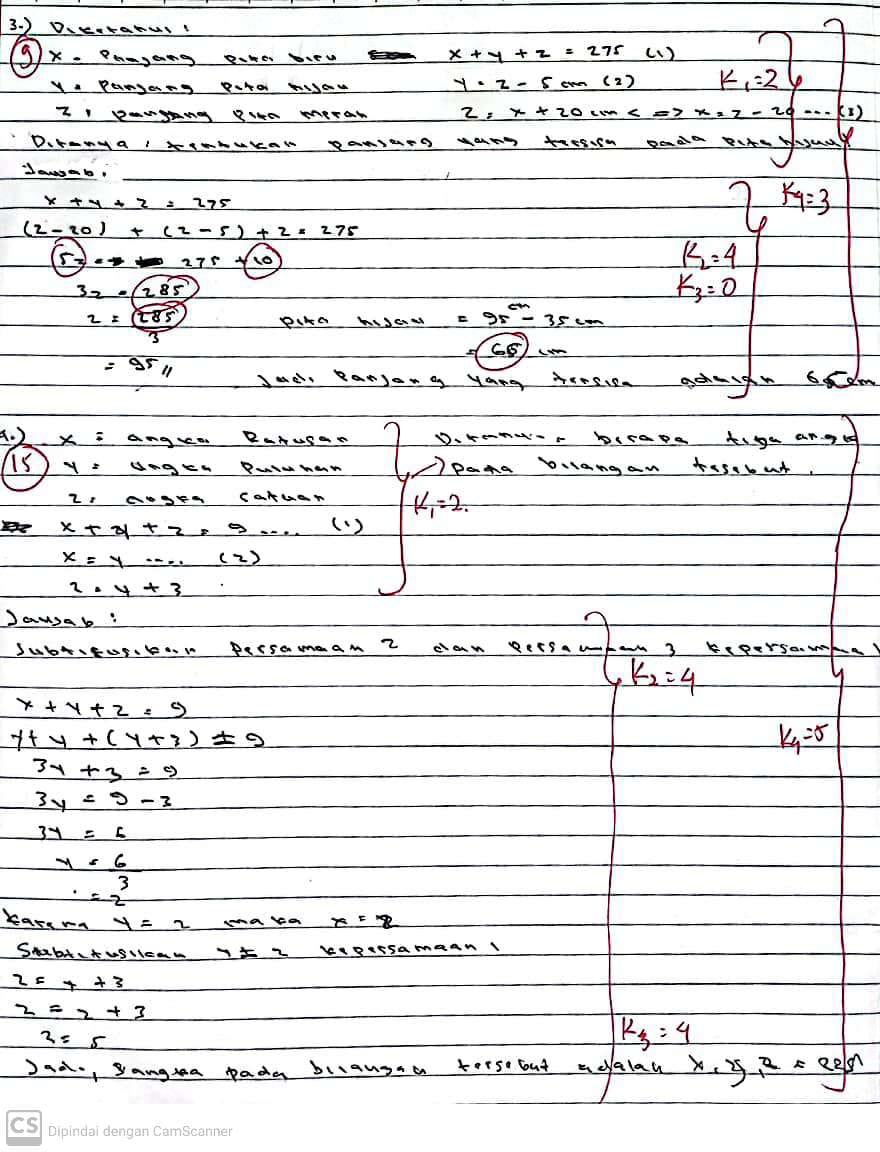 3.) Diketahui :
9 x = Panjang Pita biru x + y + z = 275 (1)
y = Panjang Pita hijau y = z - 5 cm (2) K₁=2
z = panjang pita merah z = x + 20 cm <=> x = z - 20 ... (3)
Ditanya : tentukan panjang yang tersisa pada pita hijau
Jawab : K4=3
x + y + z = 275
(z - 20) + (z - 5) + z = 275
275 + 10 K₂=4
3z = 285 K₃=0
z = 285 Pita hijau = 95 cm - 35 cm
3 = 65 cm
= 95 //
Jadi Panjang yang tersisa adalah 65 cm
4.) x = angka Ratusan berapa tiga angka
15 y = angka Puluhan pada bilangan tersebut.
z = angka satuan K₁=2.
x + y + z = 9 .... (1)
x = y .... (2)
z = y + 3
Jawab :
Subtitusikan Persamaan 2 dan Persamaan 3 kepersamaan 1
K₂=4
x + y + z = 9
y + y + (y + 3) = 9 K4=5
3y + 3 = 9
3y = 9 - 3
3y = 6
y = 6
3
= 2
karena y = 2 maka x = 2
Subtitusikan y = 2 kepersamaan 1
z = y + 3
z = 2 + 3
z = 5 K3=4
Jadi, 3 angka pada bilangan tersebut adalah x, y, z = 225
CS Dipindai dengan CamScanner